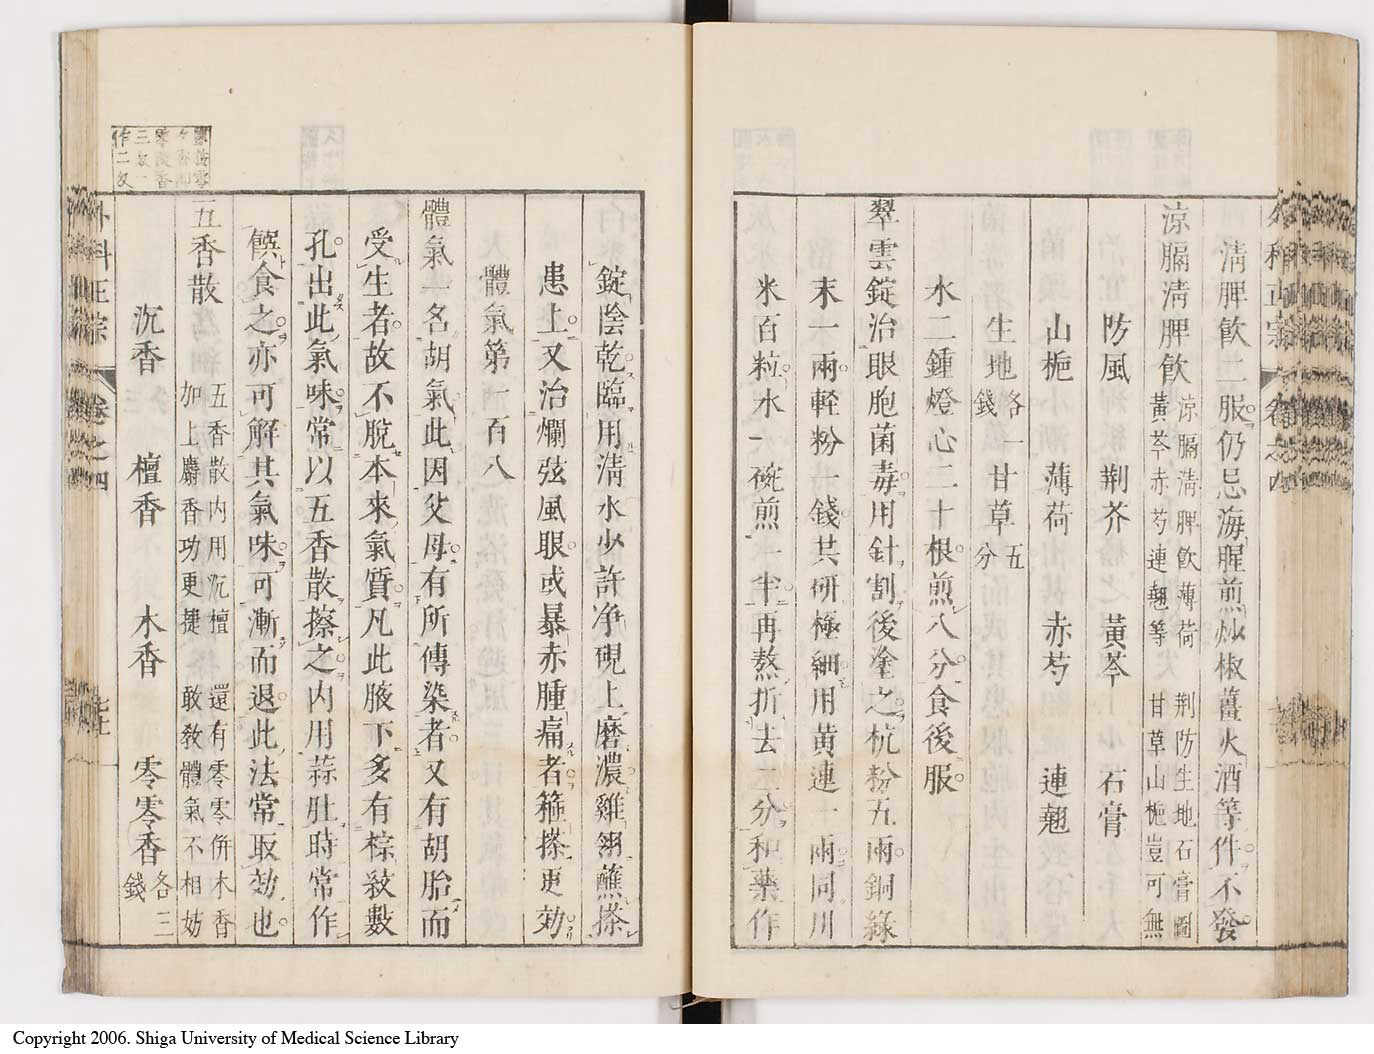 清脾飲二服仍忌海腥煎炒椒薑火酒等件不發
涼膈清脾飲
涼膈清脾飲薄荷 荆防生地石膏圖
黃芩赤芍連翹等 甘草山梔豈可無
防風 荆芥 黃芩 石膏
山梔 薄荷 赤芍 連翹
生地各一錢 甘草五分
水二鍾燈心二十根煎八分食後服
翠雲錠治眼胞菌毒用針割後塗之杭粉五兩銅綠
末一兩輕粉一錢共研極細用黃連一兩同川
米百粒水一碗煎一半再熬折去一分和藥作
錠陰乾臨用清水少許净硯上磨濃雞翎蘸搽
患上又治爛弦風眼或暴赤腫痛者箍搽更効
體氣第一百八
體氣一名胡氣此因父母有所傳染者又有胡胎而
受生者故不脫本來氣質凡此腋下多有棕紋數
孔出此氣味常以五香散擦之内用蒜肚時常作
饌食之亦可解其氣味可漸而退此法常取効也
五香散
五香散内用沉檀 還有零零併木香
加上麝香功更捷 敢教體氣不相妨
沉香 檀香 木香 零零香各三錢
外科正宗 卷之四
Copyright 2006. Shiga University of Medical Science Library